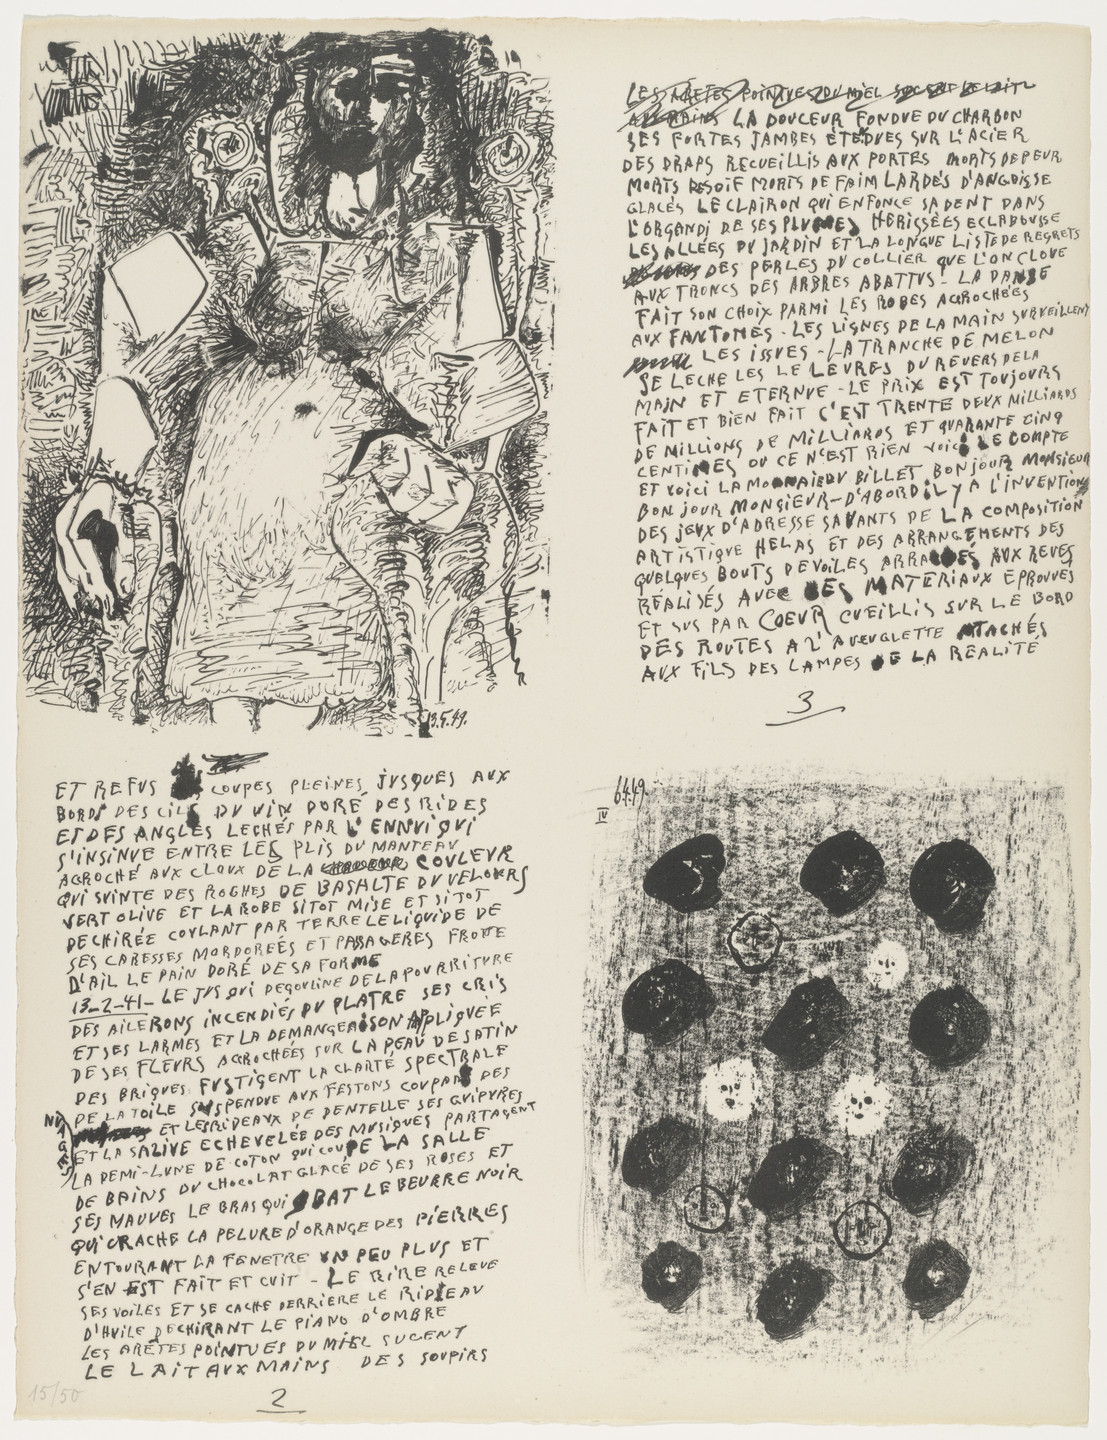 13.4.49.
LES ARÊTES POINTUES DU MIEL SUCENT LE LAIT
AUX MAINS LA DOUCEUR FONDUE DU CHARBON
SES FORTES JAMBES ÉTENDUES SUR L'ACIER
DES DRAPS RECUEILLIS AUX PORTES MORTS DE PEUR
MORTS DE SOIF MORTS DE FAIM LARDÉS D'ANGOISSE
GLACÉS LE CLAIRON QUI ENFONCE SA DENT DANS
L'ORGANDI DE SES PLUMES HERISSÉES ECLABOUSSE
LES ALLÉES DU JARDIN ET LA LONGUE LISTE DE REGRETS
DES PERLES DU COLLIER QUE L'ON CLOUE
AUX TRONCS DES ARBRES ABATTUS - LA DANSE
FAIT SON CHOIX PARMI LES ROBES ACROCHÉES
AUX FANTOMES - LES LIGNES DE LA MAIN SURVEILLENT
LES ISSUES - LA TRANCHE DE MELON
SE LECHE LES LE LEVRES DU REVERS DE LA
MAIN ET ETERNUE - LE PRIX EST TOUJOURS
FAIT ET BIEN FAIT C'EST TRENTE DEUX MILLIARDS
DE MILLIONS DE MILLIARDS ET QUARANTE CINQ
CENTIMES OU CE N'EST RIEN VOICI LE COMPTE
ET VOICI LA MONNAIE DU BILLET BONJOUR MONSIEUR
BONJOUR MONSIEUR - D'ABORD IL Y A L'INVENTION
DES JEUX D'ADRESSE SAVANTS DE LA COMPOSITION
ARTISTIQUE HELAS ET DES ARRANGEMENTS DES
QUELQUES BOUTS DE VOILES ARRACHÉS AUX REVES
RÉALISÉS AVEC DES MATERIAUX ÉPROUVES
ET SUS PAR COEUR CUEILLIS SUR LE BORD
DES ROUTES A L'AVEUGLETTE ATACHÉS
AUX FILS DES LAMPES DE LA RÉALITÉ
3
ET REFUS COUPES PLEINES JUSQUES AUX
BORDS DES CILS DU VIN DORÉ DES RIDES
ET DES ANGLES LECHÉS PAR L'ENNUI QUI
S'INSINUE ENTRE LES PLIS DU MANTEAU
ACROCHÉ AUX CLOUX DE LA COULEUR
QUI SUINTE DES ROCHES DE BASALTE DU VELOURS
VERT OLIVE ET LA ROBE SITOT MISE ET SITOT
DECHIRÉE COULANT PAR TERRE LE LIQUIDE DE
SES CARESSES MORDOREÉS ET PASSAGERES FROTTE
D'AIL LE PAIN DORÉ DE SA FORME
13-2-41- LE JUS QUI DEGOULINE DE LA POURRITURE
DES AILERONS INCENDIÉS DU PLATRE SES CRIS
ET SES LARMES ET LA DEMANGEAISON APPLIQUÉE
DE SES FLEURS ACROCHÉES SUR LA PEAU DE SATIN
DES BRIQUES FUSTIGENT LA CLARTÉ SPECTRALE
DE LA TOILE SUSPENDUE AUX FESTONS COUPANT DES
NUAGES ET LES RIDEAUX DE DENTELLE SES GUIPURES
ET LA SALIVE ECHEVELÉE DES MUSIQUES PARTAGENT
LA DEMI-LUNE DE COTON QUI COUPE LA SALLE
DE BAINS DU CHOCOLAT GLACÉ DE SES ROSES ET
SES MAUVES LE BRAS QUI BAT LE BEURRE NOIR
QUI CRACHE LA PELURE D'ORANGE DES PIERRES
ENTOURANT LA FENETRE UN PEU PLUS ET
S'EN EST FAIT ET CUIT - LE RIRE RELEVE
SES VOILES ET SE CACHE DERRIÈRE LE RIDEAU
D'HUILE DECHIRANT LE PIANO D'OMBRE
LES ARÊTES POINTUES DU MIEL SUCENT
LE LAIT AUX MAINS DES SOUPIRS
2
15/50
6.4.49
IV